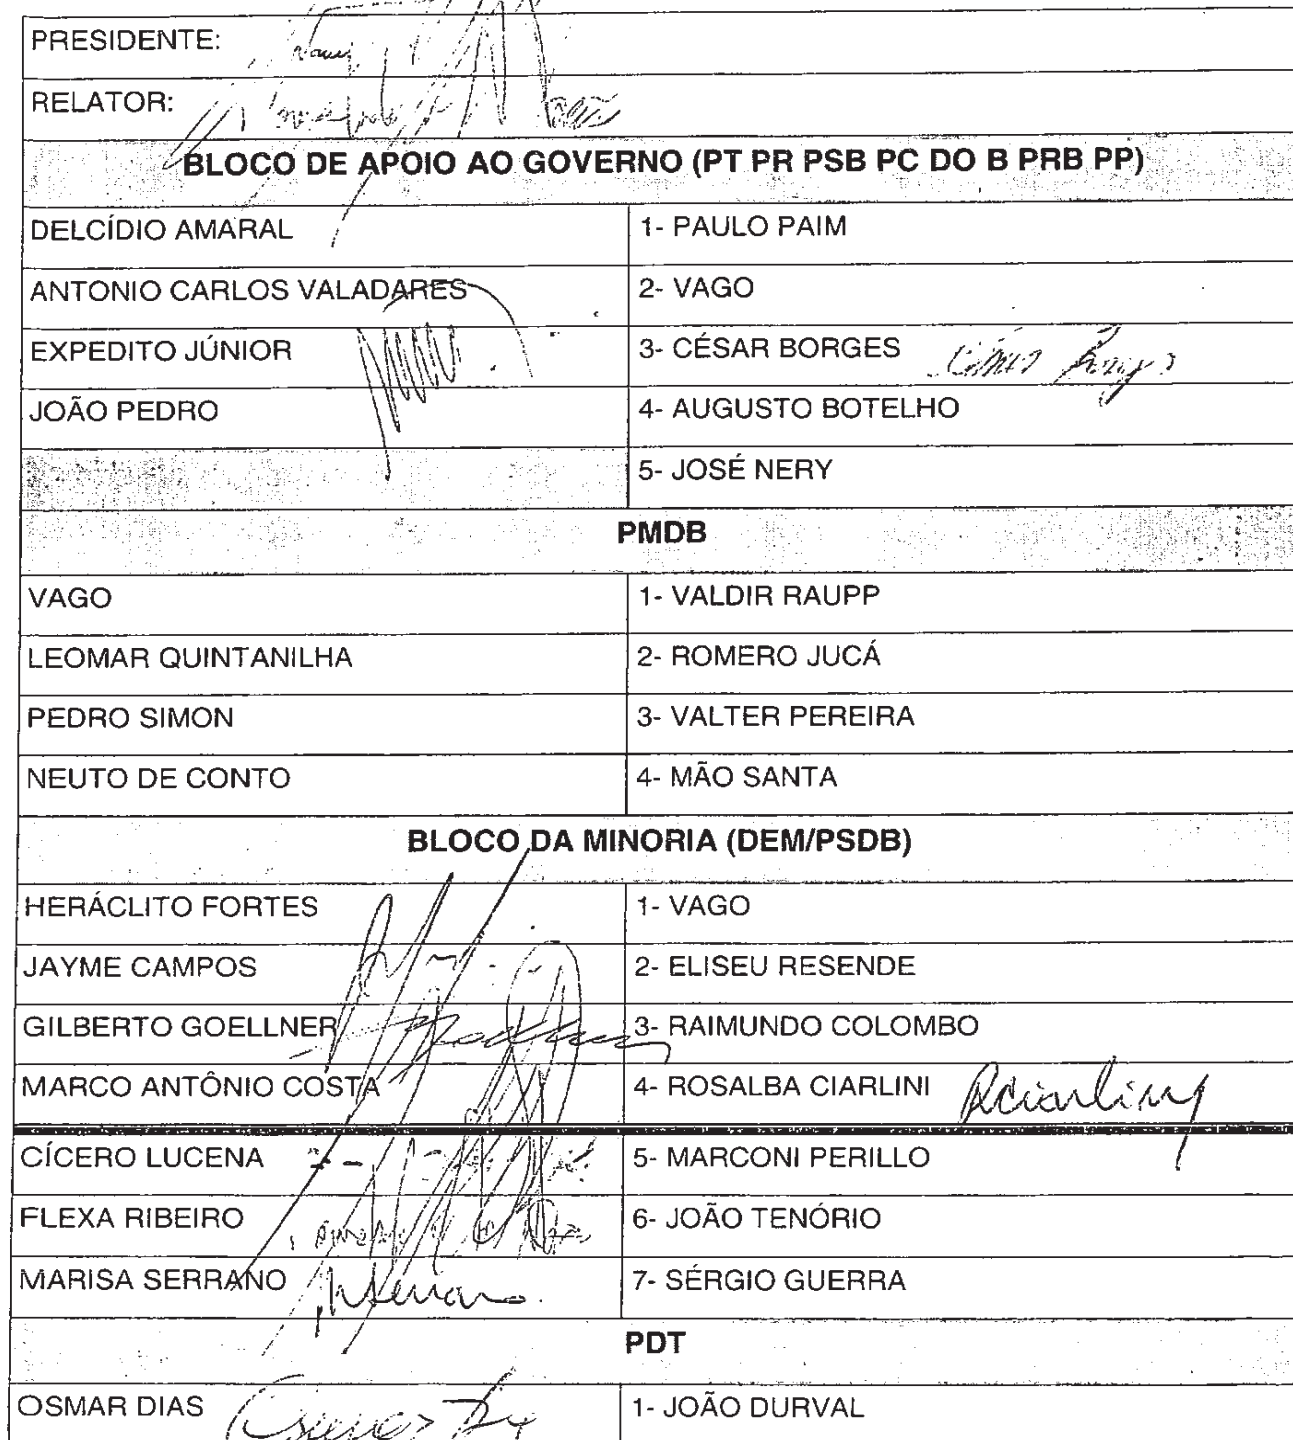 PRESIDENTE:
RELATOR:
BLOCO DE APOIO AO GOVERNO (PT PR PSB PC DO B PRB PP)
DELCÍDIO AMARAL 1- PAULO PAIM
ANTONIO CARLOS VALADARES 2- VAGO
EXPEDITO JÚNIOR 3- CÉSAR BORGES César Borges
JOÃO PEDRO 4- AUGUSTO BOTELHO
5- JOSÉ NERY
PMDB
VAGO 1- VALDIR RAUPP
LEOMAR QUINTANILHA 2- ROMERO JUCÁ
PEDRO SIMON 3- VALTER PEREIRA
NEUTO DE CONTO 4- MÃO SANTA
BLOCO DA MINORIA (DEM/PSDB)
HERÁCLITO FORTES 1- VAGO
JAYME CAMPOS 2- ELISEU RESENDE
GILBERTO GOELLNER 3- RAIMUNDO COLOMBO
MARCO ANTÔNIO COSTA 4- ROSALBA CIARLINI RCiarlini
CÍCERO LUCENA 5- MARCONI PERILLO
FLEXA RIBEIRO 6- JOÃO TENÓRIO
MARISA SERRANO 7- SÉRGIO GUERRA
PDT
OSMAR DIAS 1- JOÃO DURVAL